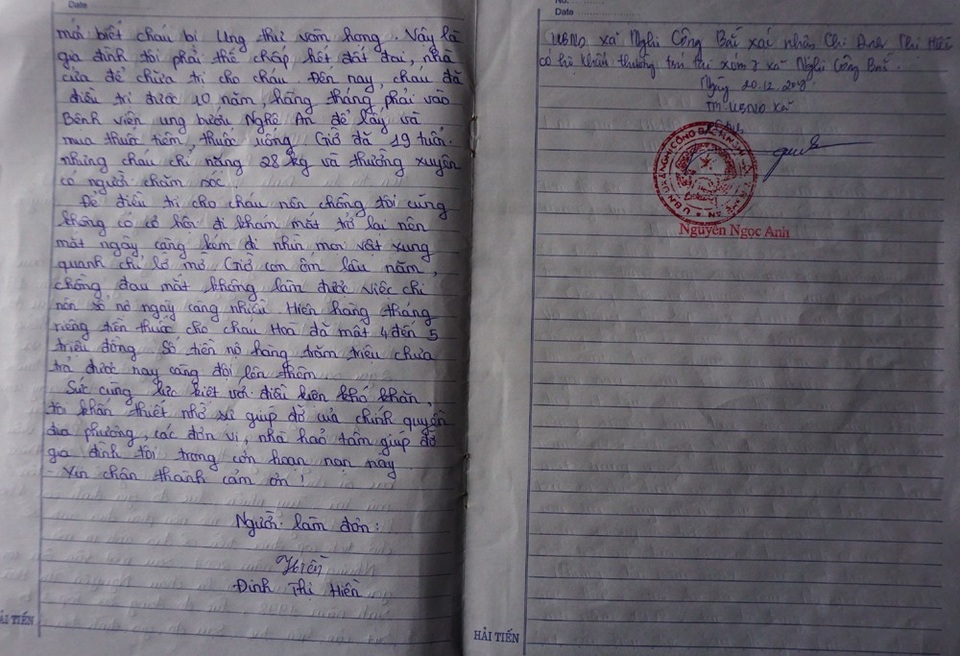 Date
mới biết cháu bị Ung thư vòm họng. Vậy là
gia đình tôi phải thế chấp hết đất đai, nhà
cửa để chữa trị cho cháu. Đến nay, cháu đã
điều trị được 10 năm, hàng tháng phải vào
Bệnh viện ung bướu Nghệ An để lấy và
mua thuốc tiêm, thuốc uống. Giờ đã 19 tuổi.
nhưng cháu chỉ nặng 28 kg và thường xuyên
có người chăm sóc.
Để điều trị cho cháu nên chồng tôi cũng
không có cơ hội đi khám mắt trở lại nên
mắt ngày càng kém đi nhìn mọi vật xung
quanh chỉ lờ mờ. Giờ con ốm lâu năm,
chồng đau mắt không làm được việc chi
nên số nợ ngày càng nhiều. Hiện hàng tháng
riêng tiền thuốc cho cháu Hoà đã mất 4 đến 5
triệu đồng. Số tiền nợ hàng trăm triệu chưa
trả được nay càng đội lên thêm.
Sức cùng lực kiệt với điều kiện khó khăn,
tôi khẩn thiết nhờ sự giúp đỡ của chính quyền
địa phương, các đơn vị, nhà hảo tâm giúp đỡ
gia đình tôi trong cơn hoạn nạn này.
Xin chân thành cảm ơn!
Người làm đơn:
Hiền
Đinh Thị Hiền
HẢI TIẾN
No.
Date
UBND xã Nghi Công Bắc xác nhận Chị Đinh Thị Hiền
có hộ khẩu thường trú tại xóm 7 xã Nghi Công Bắc.
Ngày 20.12.
TM UBND Xã
Nguyễn Ngọc Anh
HẢI TIẾN